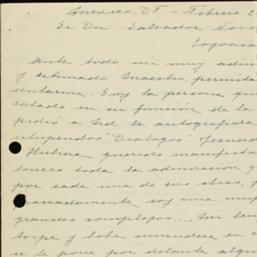 México, D.F. - Febrero 2
Sr. Don Salvador Novo
Coyoacá
Ante todo mi muy admir
y estimado Maestro, permíta
sentarme: Soy la persona que
saludó en su función de la
pidió a Ud. le autografara
estupendos "Diálogos"
Hubiera querido manifesta
tonces toda la admiración q
por cada una de sus obras,
soy una muj
grandes complejos... Soy
torpe y boba
se le pone por delante algu